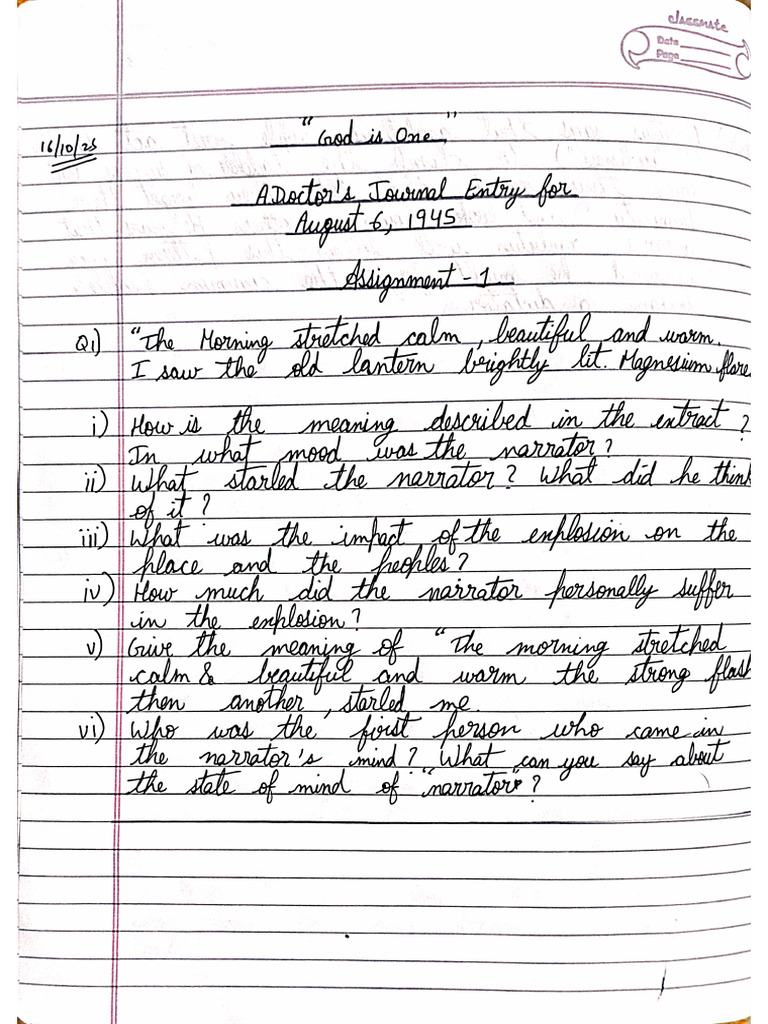 classmate
Date
Page
16/10/25
"God is One"
A Doctor's Journal Entry for
August 6, 1945
Assignment - 1
Q1) "The Morning stretched calm, beautiful and warm.
I saw the old lantern brightly lit. Magnesium flare
i) How is the meaning described in the extract?
In what mood was the narrator?
ii) What starled the narrator? What did he think
of it?
iii) What was the impact of the explosion on the
place and the peoples?
iv) How much did the narrator personally suffer
in the explosion?
v) Give the meaning of "The morning stretched
calm & beautiful and warm the strong flash
then another, starled me.
vi) Who was the first person who came in
the narrator's mind? What can you say about
the state of mind of "narrator"?